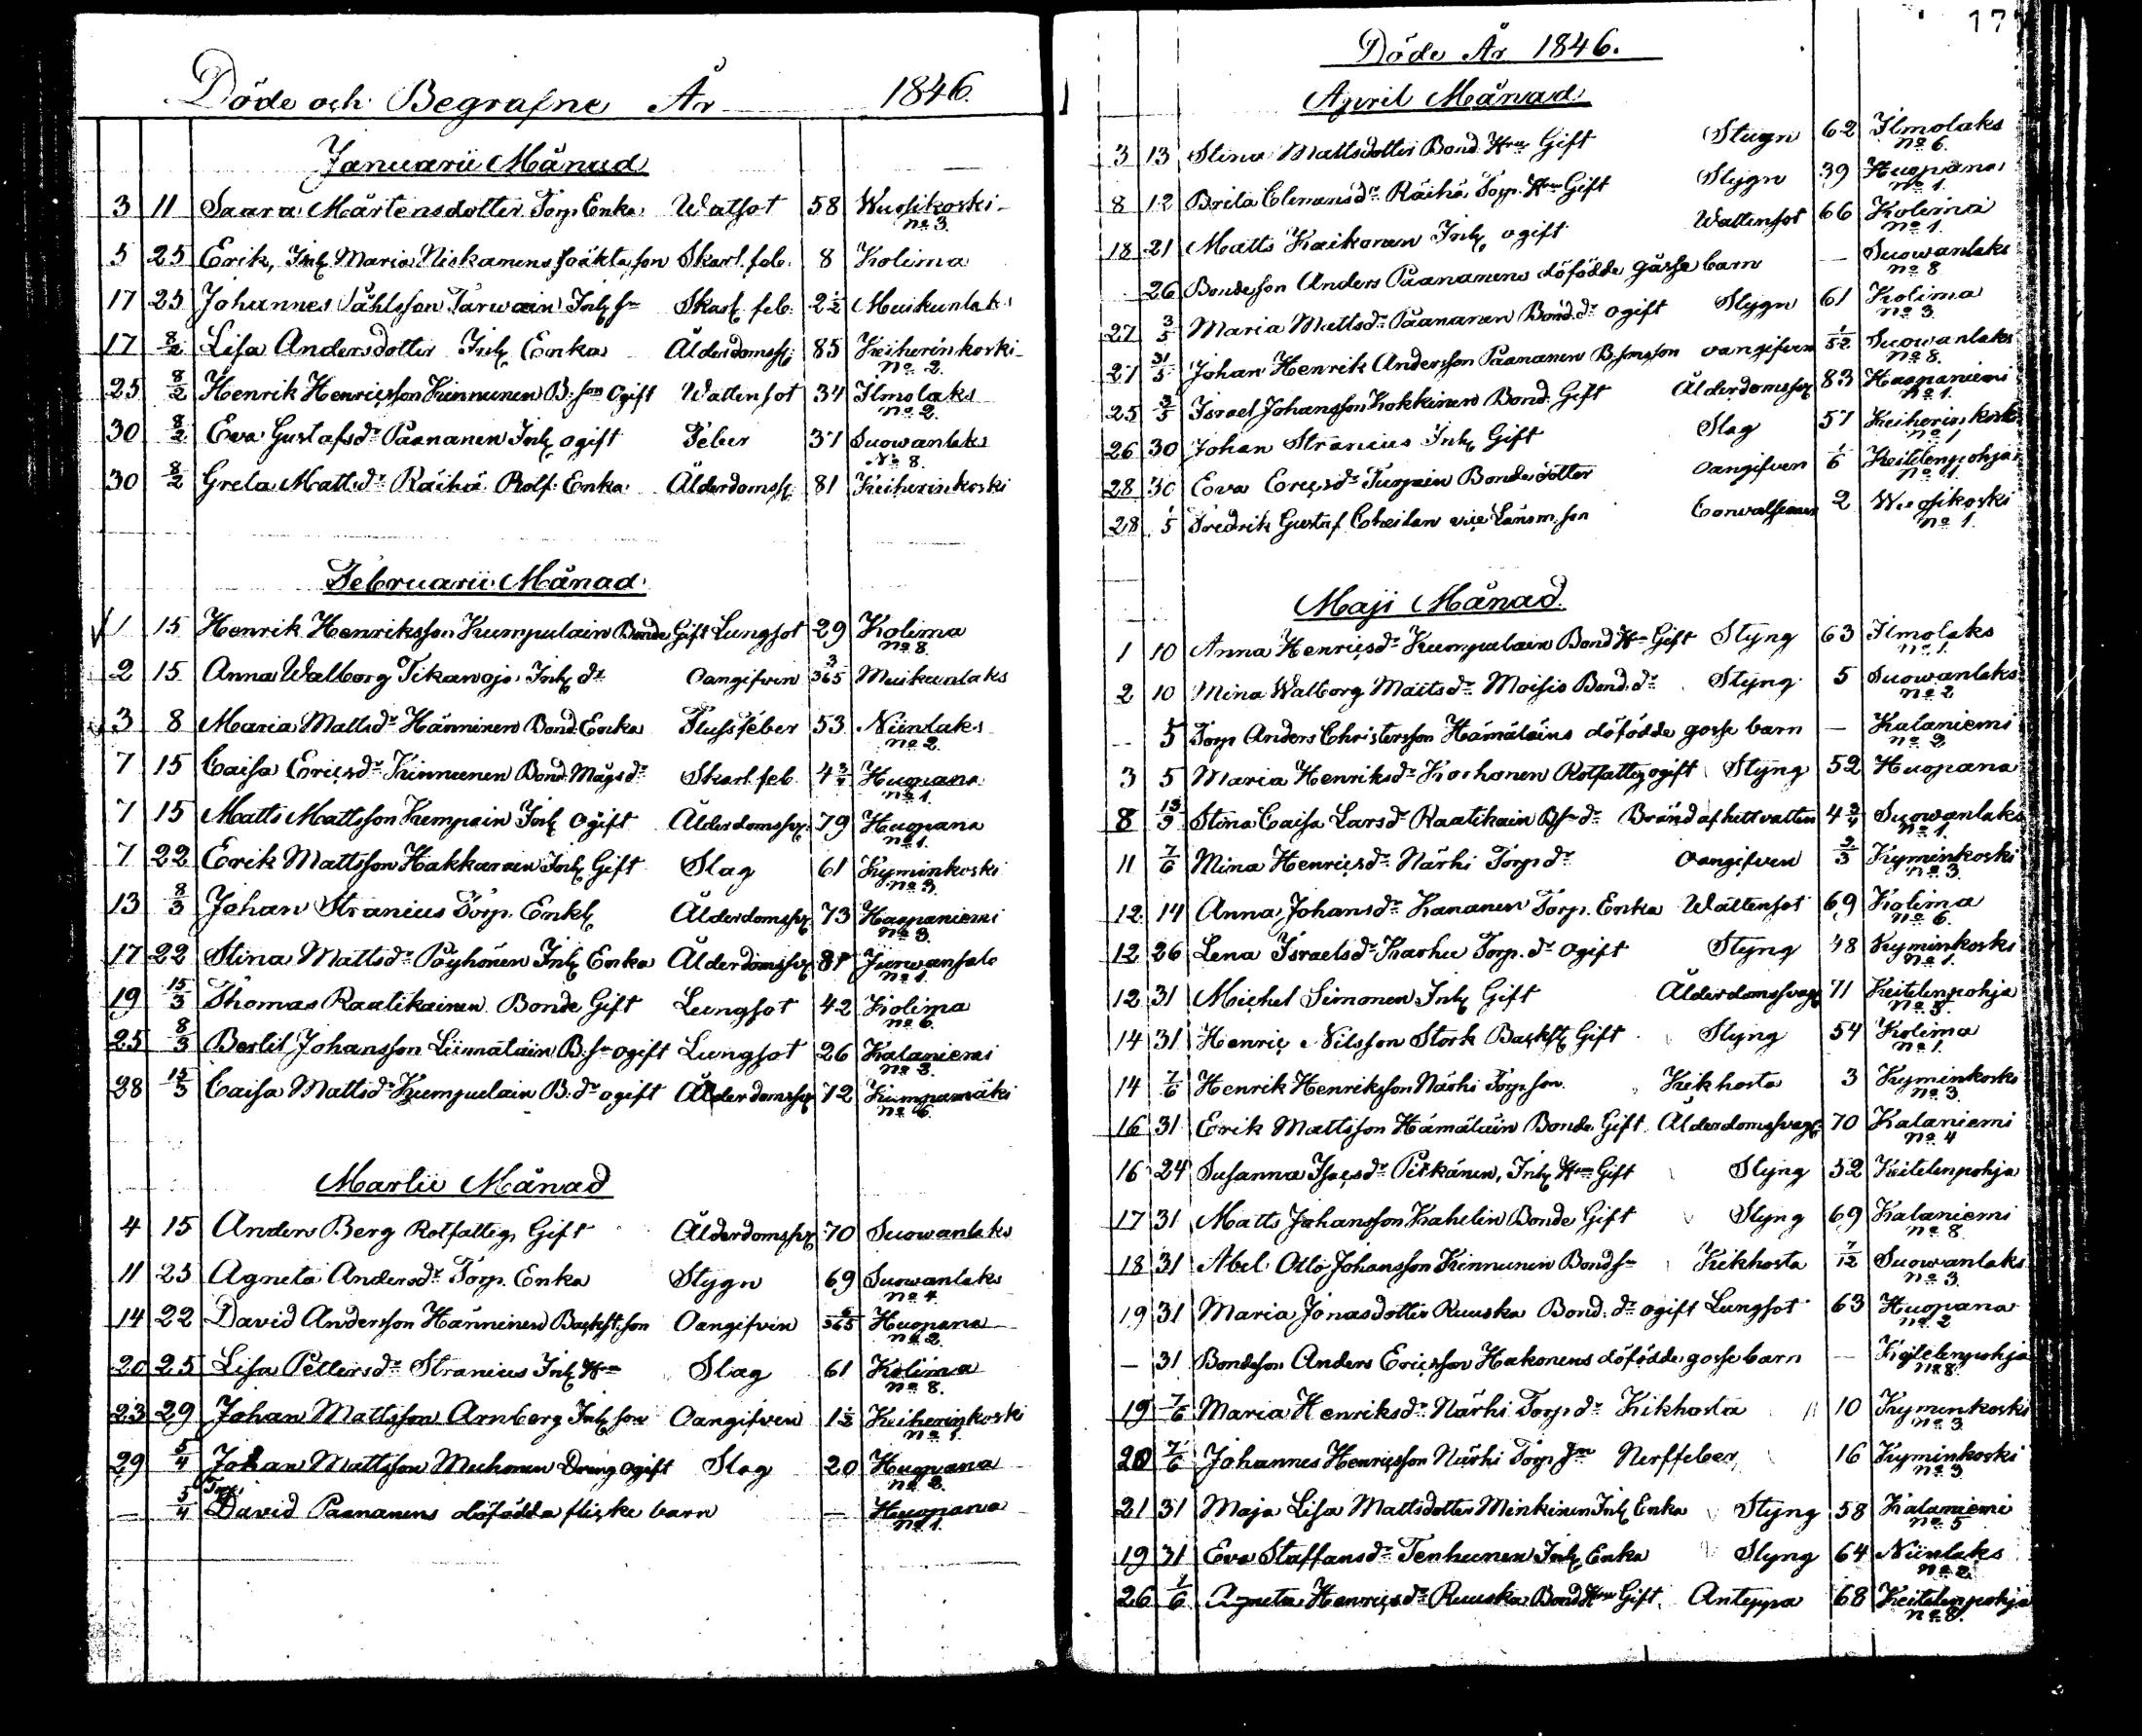 Döde och Begrafne År 1846.
Januarii Månad
3 11 Saara Mårtensdotter Torp Enka Watsot 58 Wuosikoski
no 3.
5 25 Erik, Inh Maria Niskanens oäkta son Skarl. feb. 8 Kolima
17 25 Johannes Påhlsson Tarwain Inh Sn Skarl feb. 2 1/2 Muikunlaks
17 8/2 Lisa Andersdotter Inh Enka Ålderdomss. 85 Keiherinkoski
no 2.
25 8/2 Henrik Henricsson Kinnunen B. son Ogift Wattensot 34 Ilmolaks
no 2.
30 8/2 Eva Gustafsdr Paananen Inh ogift Feber 37 Suowanlaks
No 8.
30 8/2 Greta Mattsdr Räihä Rotf. Enka Ålderdomss. 81 Keiherinkoski
Februarii Månad
1 15 Henrik Henriksson Kumpulain Bonde Gift Lungsot 29 Kolima
no 8.
2 15 Anna Walborg Tikawojo Inh dr Oangifven 3/365 Muikunlaks
3 8 Maria Mattsdr Hänninen Bond. Enka Flussfeber 53 Niinlaks
no 2.
7 15 Caisa Ericsdr Kinnunen Bond. Mågs dr Skarl. feb. 4 3/4 Huopana
no 1.
7 15 Matts Mattsson Kumpuin Inh Ogift Ålderdomssv. 79 Huopana
no 1.
7 22 Erik Mattsson Hakkarain Inh Gift Slag 61 Kyminkoski
no 3.
13 8/3 Johan Stranius Torp. Enkl Ålderdomssv 73 Haapaniemi
no 3.
17 22 Stina Mattsdr Pöyhönen Inh Enka Ålderdomssv 81 Jurwansalo
no 1.
19 15/3 Thomas Raatikainen Bonde Gift Lungsot 42 Kolima
no 6.
25 8/3 Bertil Johansson Liimatain B. Sn ogift Lungsot 26 Kalaniemi
no 3.
28 15/3 Caisa Mattsdr Kumpulain B. dr ogift Ålderdomssv 72 Kumpumäki
no 6.
Martii Månad
4 15 Anders Berg Rotfattig Gift Ålderdomssv 70 Suowanlaks
11 23 Agneta Andersdr Torp. Enka Stygn 69 Suowanlaks
no 4.
14 22 David Andersson Hänninen Backst. son Oangifven 6/365 Huopana
no 2.
20 25 Lisa Pettersdr Stranius Inh Hru Slag 61 Kolima
no 8.
23 29 Johan Mattsson Arnberg Inh son Oangifven 1 1/2 Keiherinkoski
no 1.
29 5/4 Johan Mattsson Muhonen Dräng ogift Slag 20 Huopana
no 2.
— 5/4 Torp David Paananens döfödda flicke barn — Huopana
no 1.
17
Döde År 1846.
April Månad
3 13 Stina Mattsdotter Bond. Hru Gift Stygn 62 Ilmolaks
no 6.
8 12 Brita Clemensdr Räihä Torp. Hru Gift Stygn 39 Huopana
no 1.
18 21 Matts Kaikonen Inh ogift Wattensot 66 Kolima
no 1.
26 Bondeson Anders Paananens döfödde gosse barn — Suowanlaks
no 8
27 3/5 Maria Mattsdr Paananen Bond. dr ogift Stygn 61 Kolima
no 3.
27 31/5 Johan Henrik Andersson Paananen B. sonson oangifven 1/52 Suowanlaks
no 8.
25 3/5 Israel Johansson Kokkinen Bond. Gift Ålderdomssv 83 Haapaniemi
no 1.
26 30 Johan Stranius Inh Gift Slag 57 Keiherinkoski
no 1
28 30 Eva Ericsdr Turpein Bondedotter Oangifven 1/6 Keitelenpohja
no 11.
28 1/5 Fredrik Gustaf Cheilan vice Länsm. son 2 Wuosikoski
no 1.
Maji Månad
1 10 Anna Henricsdr Kumpulain Bond Hru Gift Styng 63 Ilmolaks
no 1.
2 10 Mina Walborg Mattsdr Moisio Bond. dr Styng 5 Suowanlaks
no 2
— 5 Torp Anders Christersson Hämäläins döfödde gosse barn — Kalaniemi
no 2
3 5 Maria Henriksdr Korhonen Rotfattig ogift Styng 52 Huopana
8 13/9 Stina Caisa Larsdr Raatikain B. Sn dr Bränd af hett vatten 4 3/4 Suowanlaks
no 1.
11 7/6 Mina Henricsdr Närhi Torp dr Oangifven 2/3 Kyminkoski
no 3.
12 14 Anna Johansdr Kananen Torp. Enka Wattensot 69 Kolima
no 6.
12 26 Lena Israelsdr Karhu Torp. dr Ogift Styng 48 Kyminkoski
no 1.
12 31 Michel Simonen Inh Gift Ålderdomssvagh 71 Keitelenpohja
no 5.
14 31 Henric Nilsson Stork Backst Gift Styng 54 Kolima
no 1.
14 7/6 Henrik Henriksson Närhi Torp. son Kikhosta 3 Kyminkoski
no 3.
16 31 Erik Mattsson Hämäläin Bonde Gift Ålderdomssvagh 70 Kalaniemi
no 4
16 24 Susanna Isacsdr Pitkänen, Inh Hru Gift Styng 52 Keitelenpohja
17 31 Matts Johansson Kahelin Bonde Gift Styng 69 Kalaniemi
no 8
18 31 Abel Otto Johansson Kinnunen Bond Sn Kikhosta 7/12 Suowanlaks
no 3.
19 31 Maria Jonasdotter Ruuska Bond. dr ogift Lungsot 63 Huopana
no 2
— 31 Bondeson Anders Ericsson Hakonens döfödde gosse barn — Keitelenpohja
no 8.
19 7/6 Maria Henriksdr Närhi Torp dr Kikhosta 10 Kyminkoski
no 3
20 7/6 Johannes Henricsson Närhi Torp Sn Nerffeber 16 Kyminkoski
no 3
21 31 Maja Lisa Mattsdotter Minkinen Inh Enka Styng 58 Kalaniemi
no 5
19 31 Eva Staffansdr Tenhunen Inh Enka Styng 64 Niinlaks
no 2.
26 1/6 Agneta Henricsdr Ruuska Bond Hru Gift Anteppa 68 Keitelenpohja
no 8.